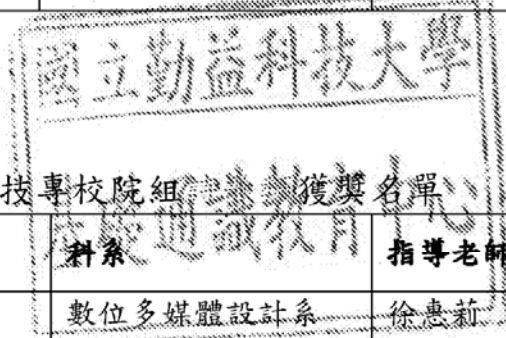 國立勤益科技大學
技專校院組 獲獎名單
基礎通識教育中心
科系 指導老師
數位多媒體設計系 徐惠莉